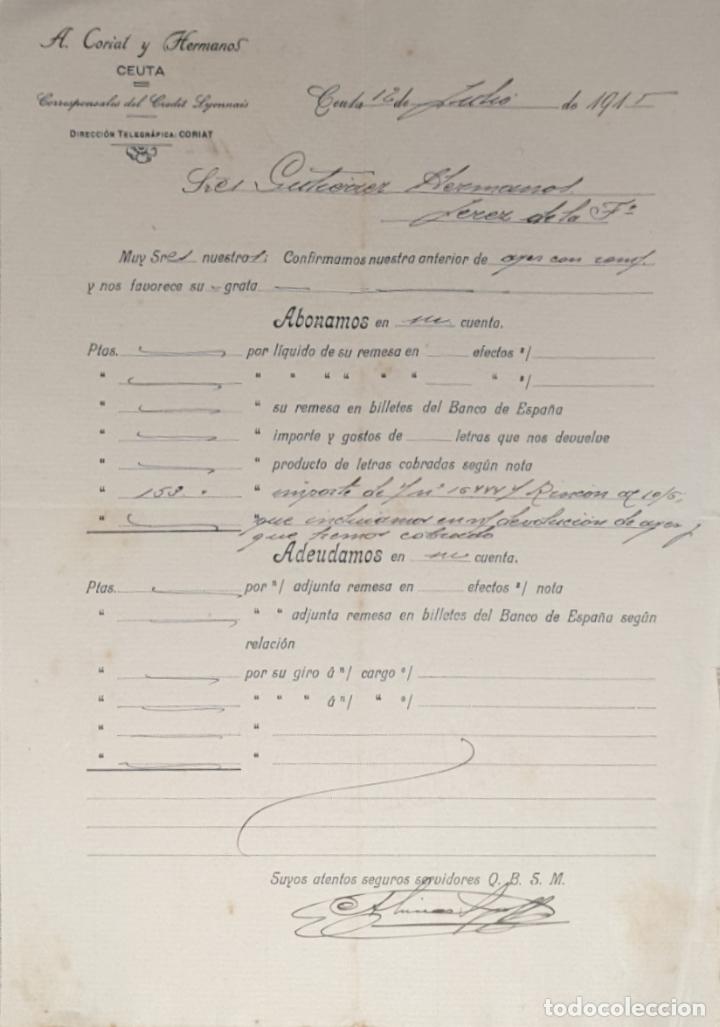 A. Coriat y Hermanos
CEUTA
Corresponsales del Credit Lyonnais
DIRECCIÓN TELEGRÁFICA: CORIAT
Ceuta 12 de Julio de 1915
Sres Gutierrez Hermanos
Jerez de la Fª
Muy Sres nuestros: Confirmamos nuestra anterior de ayer con
y nos favorece su grata
Abonamos en su cuenta.
Ptas. por líquido de su remesa en efectos s/
" " " " " " " " s/
" " su remesa en billetes del Banco de España
" " importe y gastos de letras que nos devuelve
" " producto de letras cobradas según nota
" 153. " importe de Rincón
" " que incluiamos en n/ devolución de ayer y
que hemos cobrado
Adeudamos en su cuenta.
Ptas. por n/ adjunta remesa en efectos s/ nota
" " " adjunta remesa en billetes del Banco de España según
relación
" por su giro á n/ cargo o/
" " " " á n/ " o/
" "
" "
Suyos atentos seguros servidores Q. B. S. M.
todocoleccion